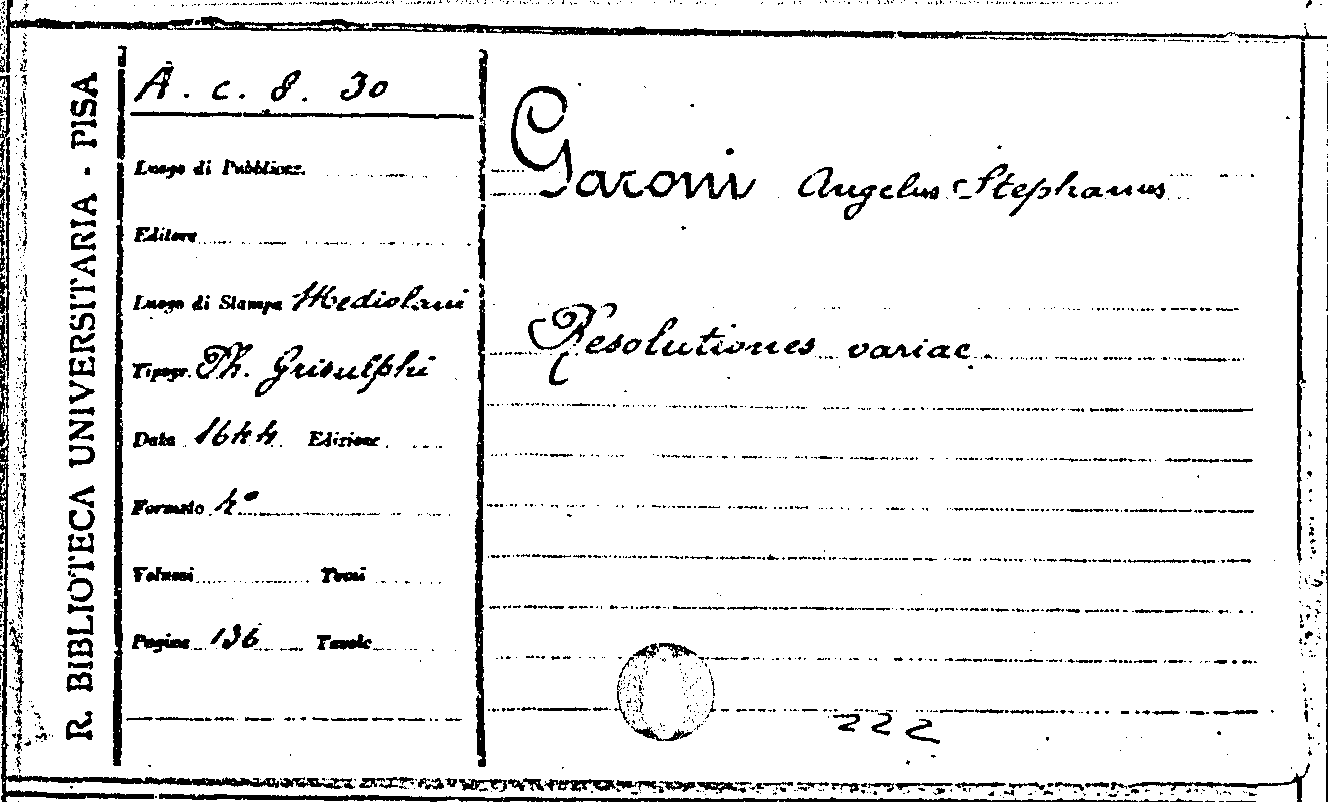 R. BIBLIOTECA UNIVERSITARIA - PISA
A. c. 8. 30
Luogo di Pubblicaz.
Editore
Luogo di Stampa Mediolani
Tipogr. Ph. Grisulphi
Data 1644 Edizione
Formato 4°
Volumi Tomi
Pagine 136 Tavole
Garoni Angelus Stephanus
Resolutiones variae.
222